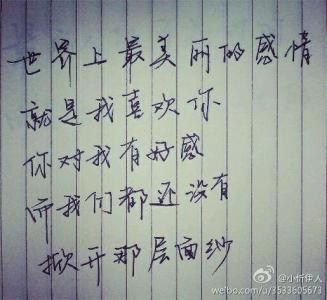 世界上最美丽的感情
就是我喜欢你
你对我有好感
而我们都还没有
掀开那层面纱
@小忻伊人
weibo.com/u/3533605673